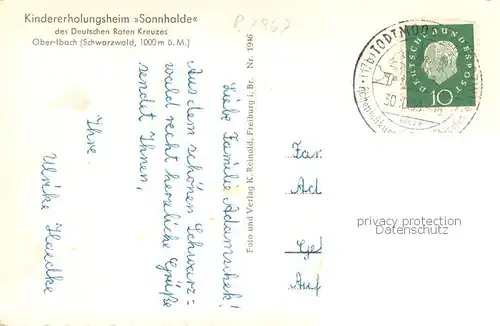 Kindererholungsheim »Sonnhalde«
des Deutschen Roten Kreuzes
Ober-Ibach (Schwarzwald, 1000 m ü. M.)
P 7967
Liebe Familie Adamschek!
Aus dem schönen Schwarz-
wald recht herzliche Grüße
sendet Ihnen,
Ihre
Ulrike Haedke
Foto und Verlag K. Reinold, Freiburg i. Br. Nr. 1946
TODTMOOS
30
DEUTSCHE BUNDESPOST
10
Fam
Ad
privacy protection
Datenschutz